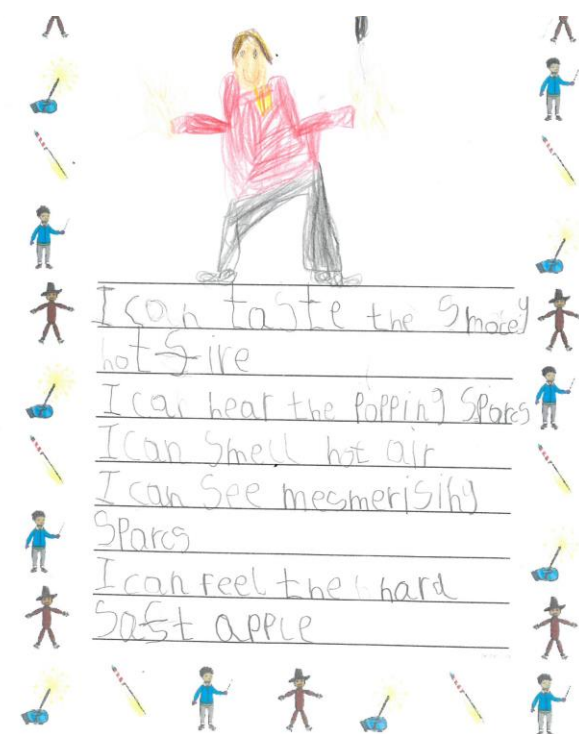 I can taste the smocey
hot fire
I can hear the popping sparcs
I can smell hot air
I can see mesmerising
sparcs
I can feel the hard
saft apple